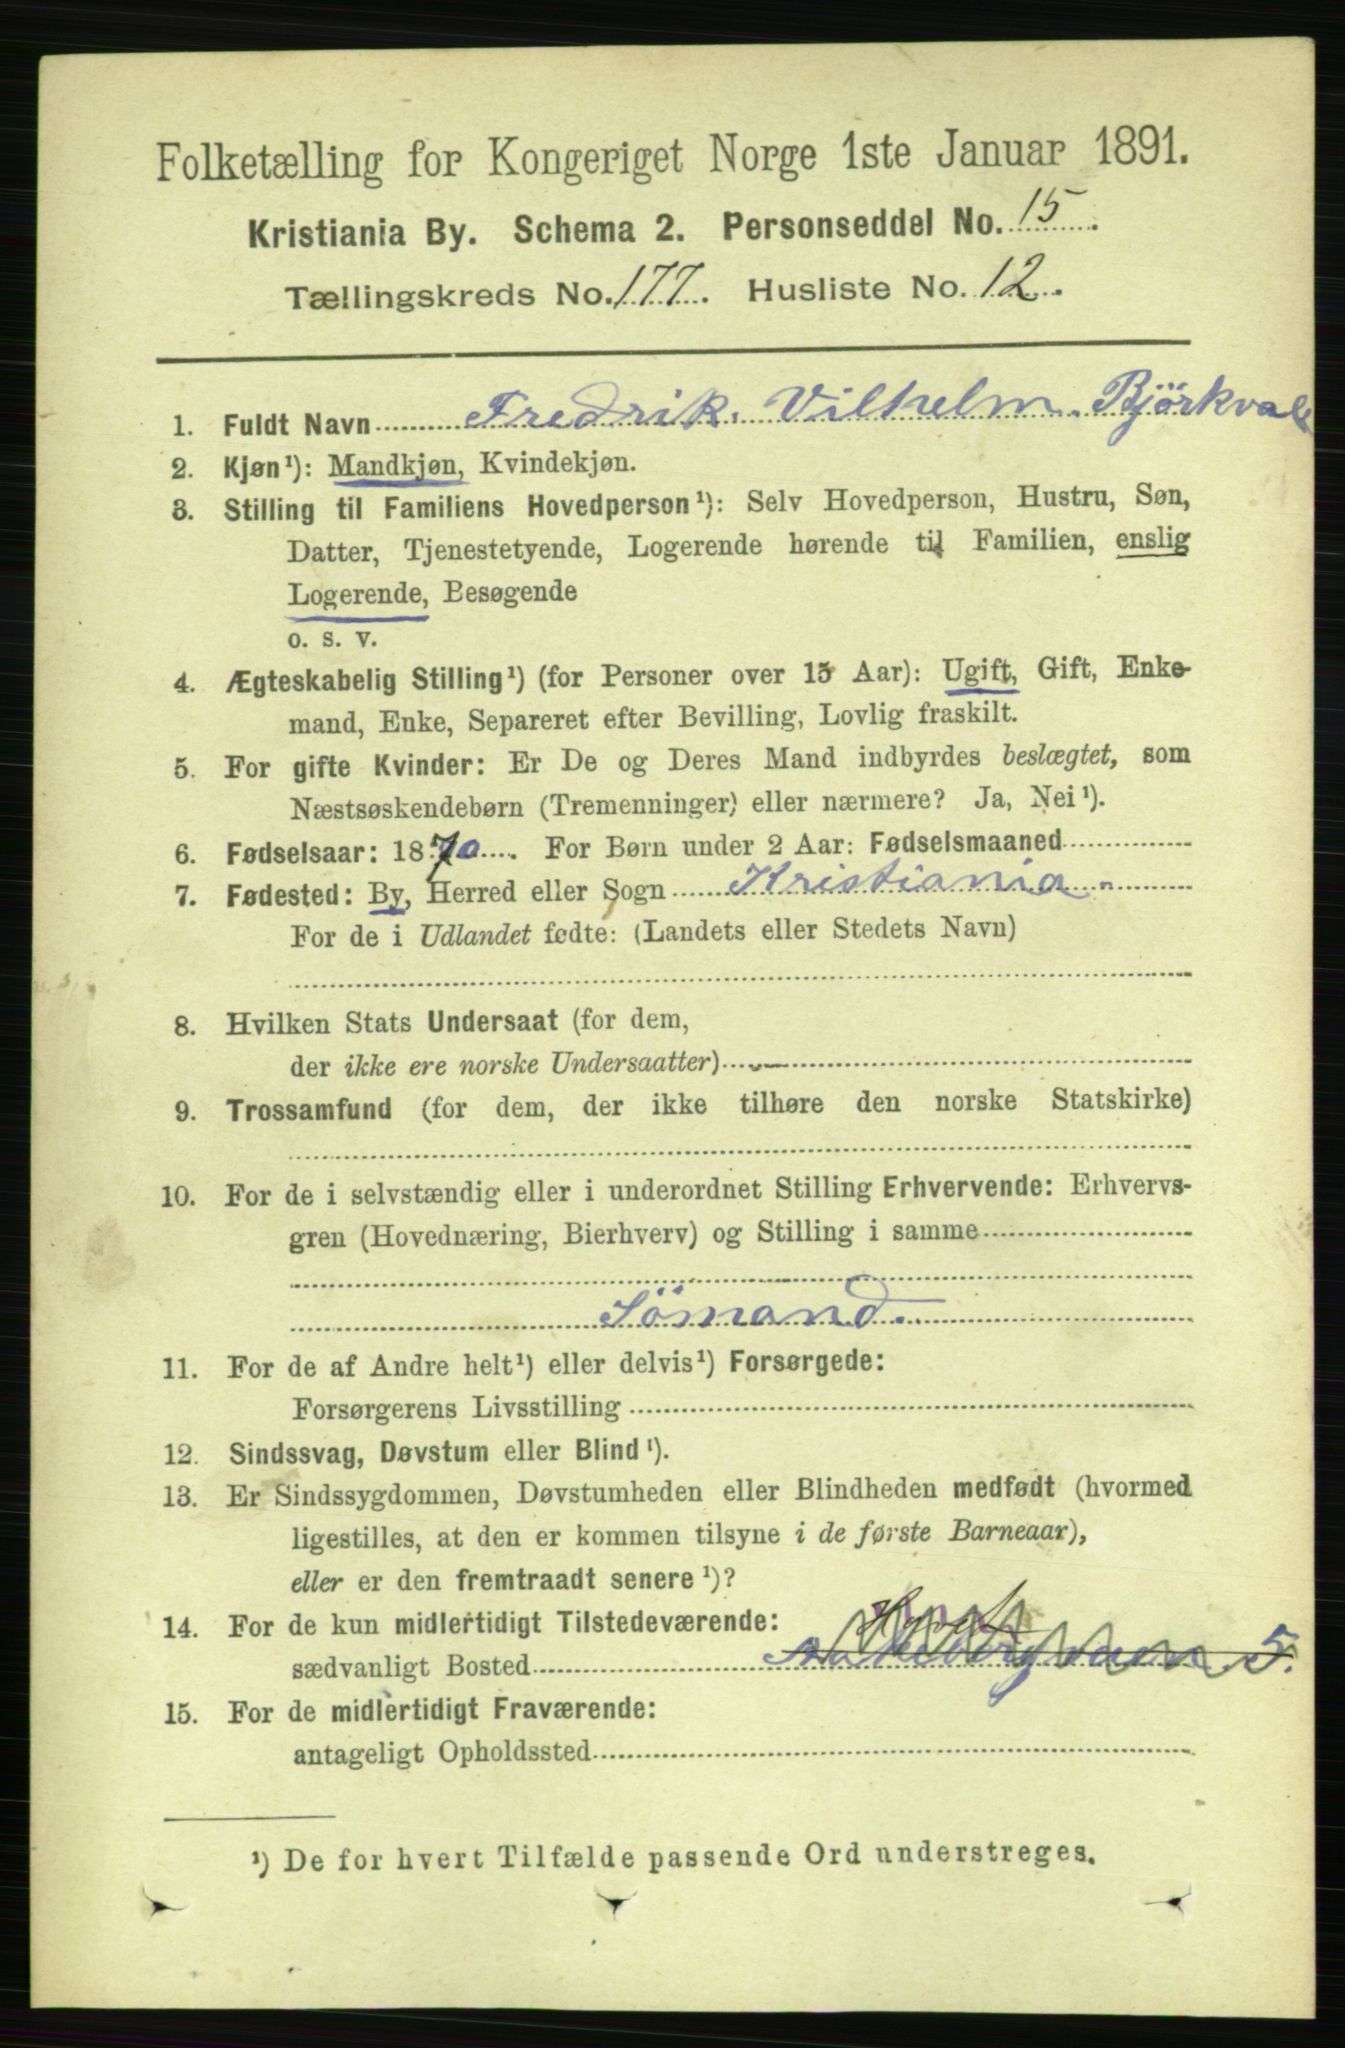 Folketælling for Kongeriget Norge 1ste Januar 1891.
Kristiania By. Schema 2. Personseddel No. 15.
Tællingskreds No. 177. Husliste No. 12.
1. Fuldt Navn Fredrik. Vilhelm. Björkvall
2. Kjøn¹): Mandkjøn, Kvindekjøn.
3. Stilling til Familiens Hovedperson¹): Selv Hovedperson, Hustru, Søn,
Datter, Tjenestetyende, Logerende hørende til Familien, enslig
Logerende, Besøgende
o. s. v.
4. Ægteskabelig Stilling¹) (for Personer over 15 Aar): Ugift, Gift, Enke-
mand, Enke, Separeret efter Bevilling, Lovlig fraskilt.
5. For gifte Kvinder: Er De og Deres Mand indbyrdes beslægtet, som
Næstsøskendebørn (Tremenninger) eller nærmere? Ja, Nei¹).
6. Fødselsaar: 1870. For Børn under 2 Aar: Fødselsmaaned
7. Fødested: By, Herred eller Sogn Kristiania
For de i Udlandet fødte: (Landets eller Stedets Navn)
8. Hvilken Stats Undersaat (for dem,
der ikke ere norske Undersaatter)
9. Trossamfund (for dem, der ikke tilhøre den norske Statskirke)
10. For de i selvstændig eller i underordnet Stilling Erhvervende: Erhvervs-
gren (Hovednæring, Bierhverv) og Stilling i samme
Sömand.
11. For de af Andre helt¹) eller delvis¹) Forsørgede:
Forsørgerens Livsstilling
12. Sindssvag, Døvstum eller Blind¹).
13. Er Sindssygdommen, Døvstumheden eller Blindheden medfødt (hvormed
ligestilles, at den er kommen tilsyne i de første Barneaar),
eller er den fremtraadt senere¹)?
14. For de kun midlertidigt Tilstedeværende:
sædvanligt Bosted 5.
15. For de midlertidigt Fraværende:
antageligt Opholdssted
¹) De for hvert Tilfælde passende Ord understreges.